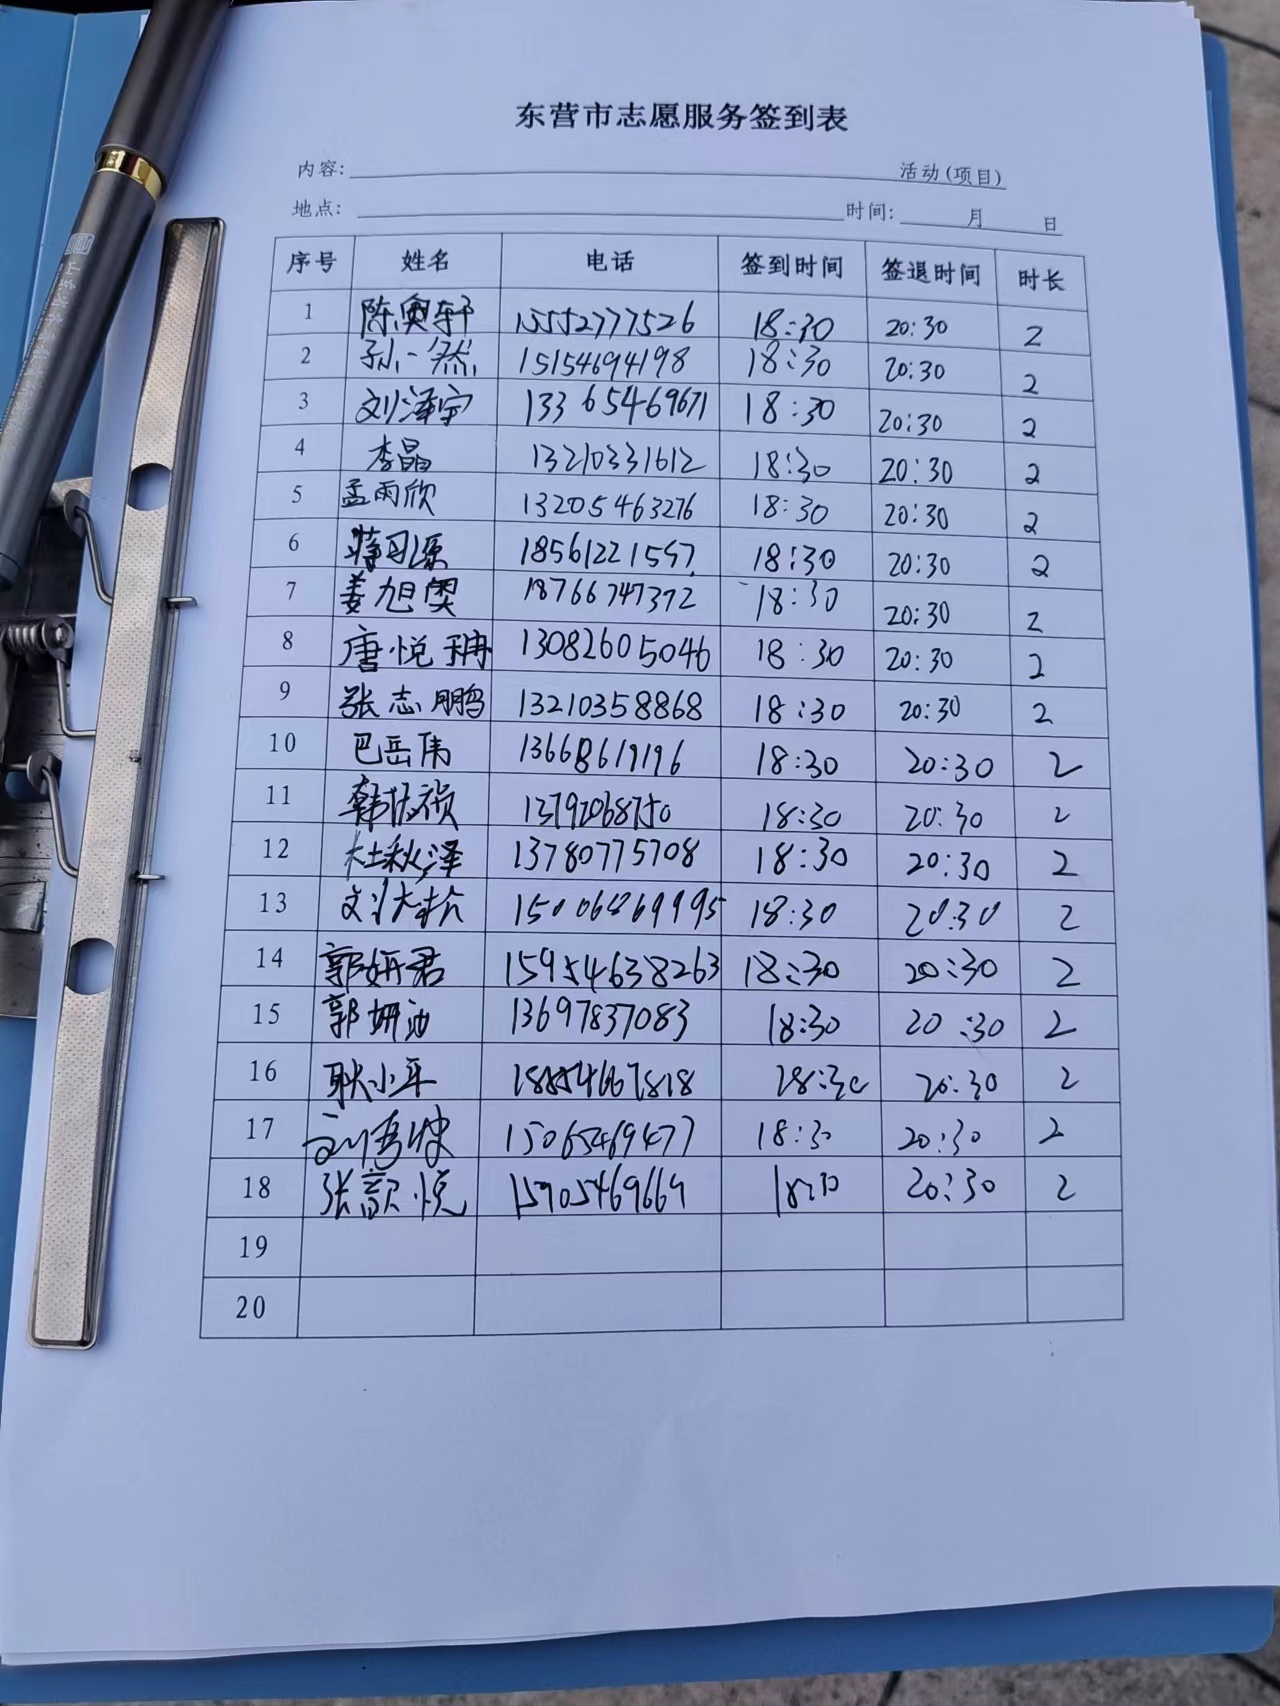 东营市志愿服务签到表
内容: 活动(项目)
地点: 时间: 月 日
序号 姓名 电话 签到时间 签退时间 时长
1 陈奥轩 15552777526 18:30 20:30 2
2 孙一然 15154694198 18:30 20:30 2
3 刘泽宇 13365469671 18:30 20:30 2
4 李晶 13210331612 18:30 20:30 2
5 孟雨欣 13205463276 18:30 20:30 2
6 18561221557 18:30 20:30 2
7 姜旭雯 18766747372 18:30 20:30 2
8 唐悦珃 13082605046 18:30 20:30 2
9 张志鹏 13210358868 18:30 20:30 2
10 巴岳伟 13668619196 18:30 20:30 2
11 13792068750 18:30 20:30 2
12 杜秋泽 13780775708 18:30 20:30 2
13 15006869995 18:30 20:30 2
14 郭妍君 15954638263 18:30 20:30 2
15 13697837083 18:30 20:30 2
16 耿小平 18854667818 18:30 20:30 2
17 15065469477 18:30 20:30 2
18 张歆悦 15905469669 18:30 20:30 2
19
20